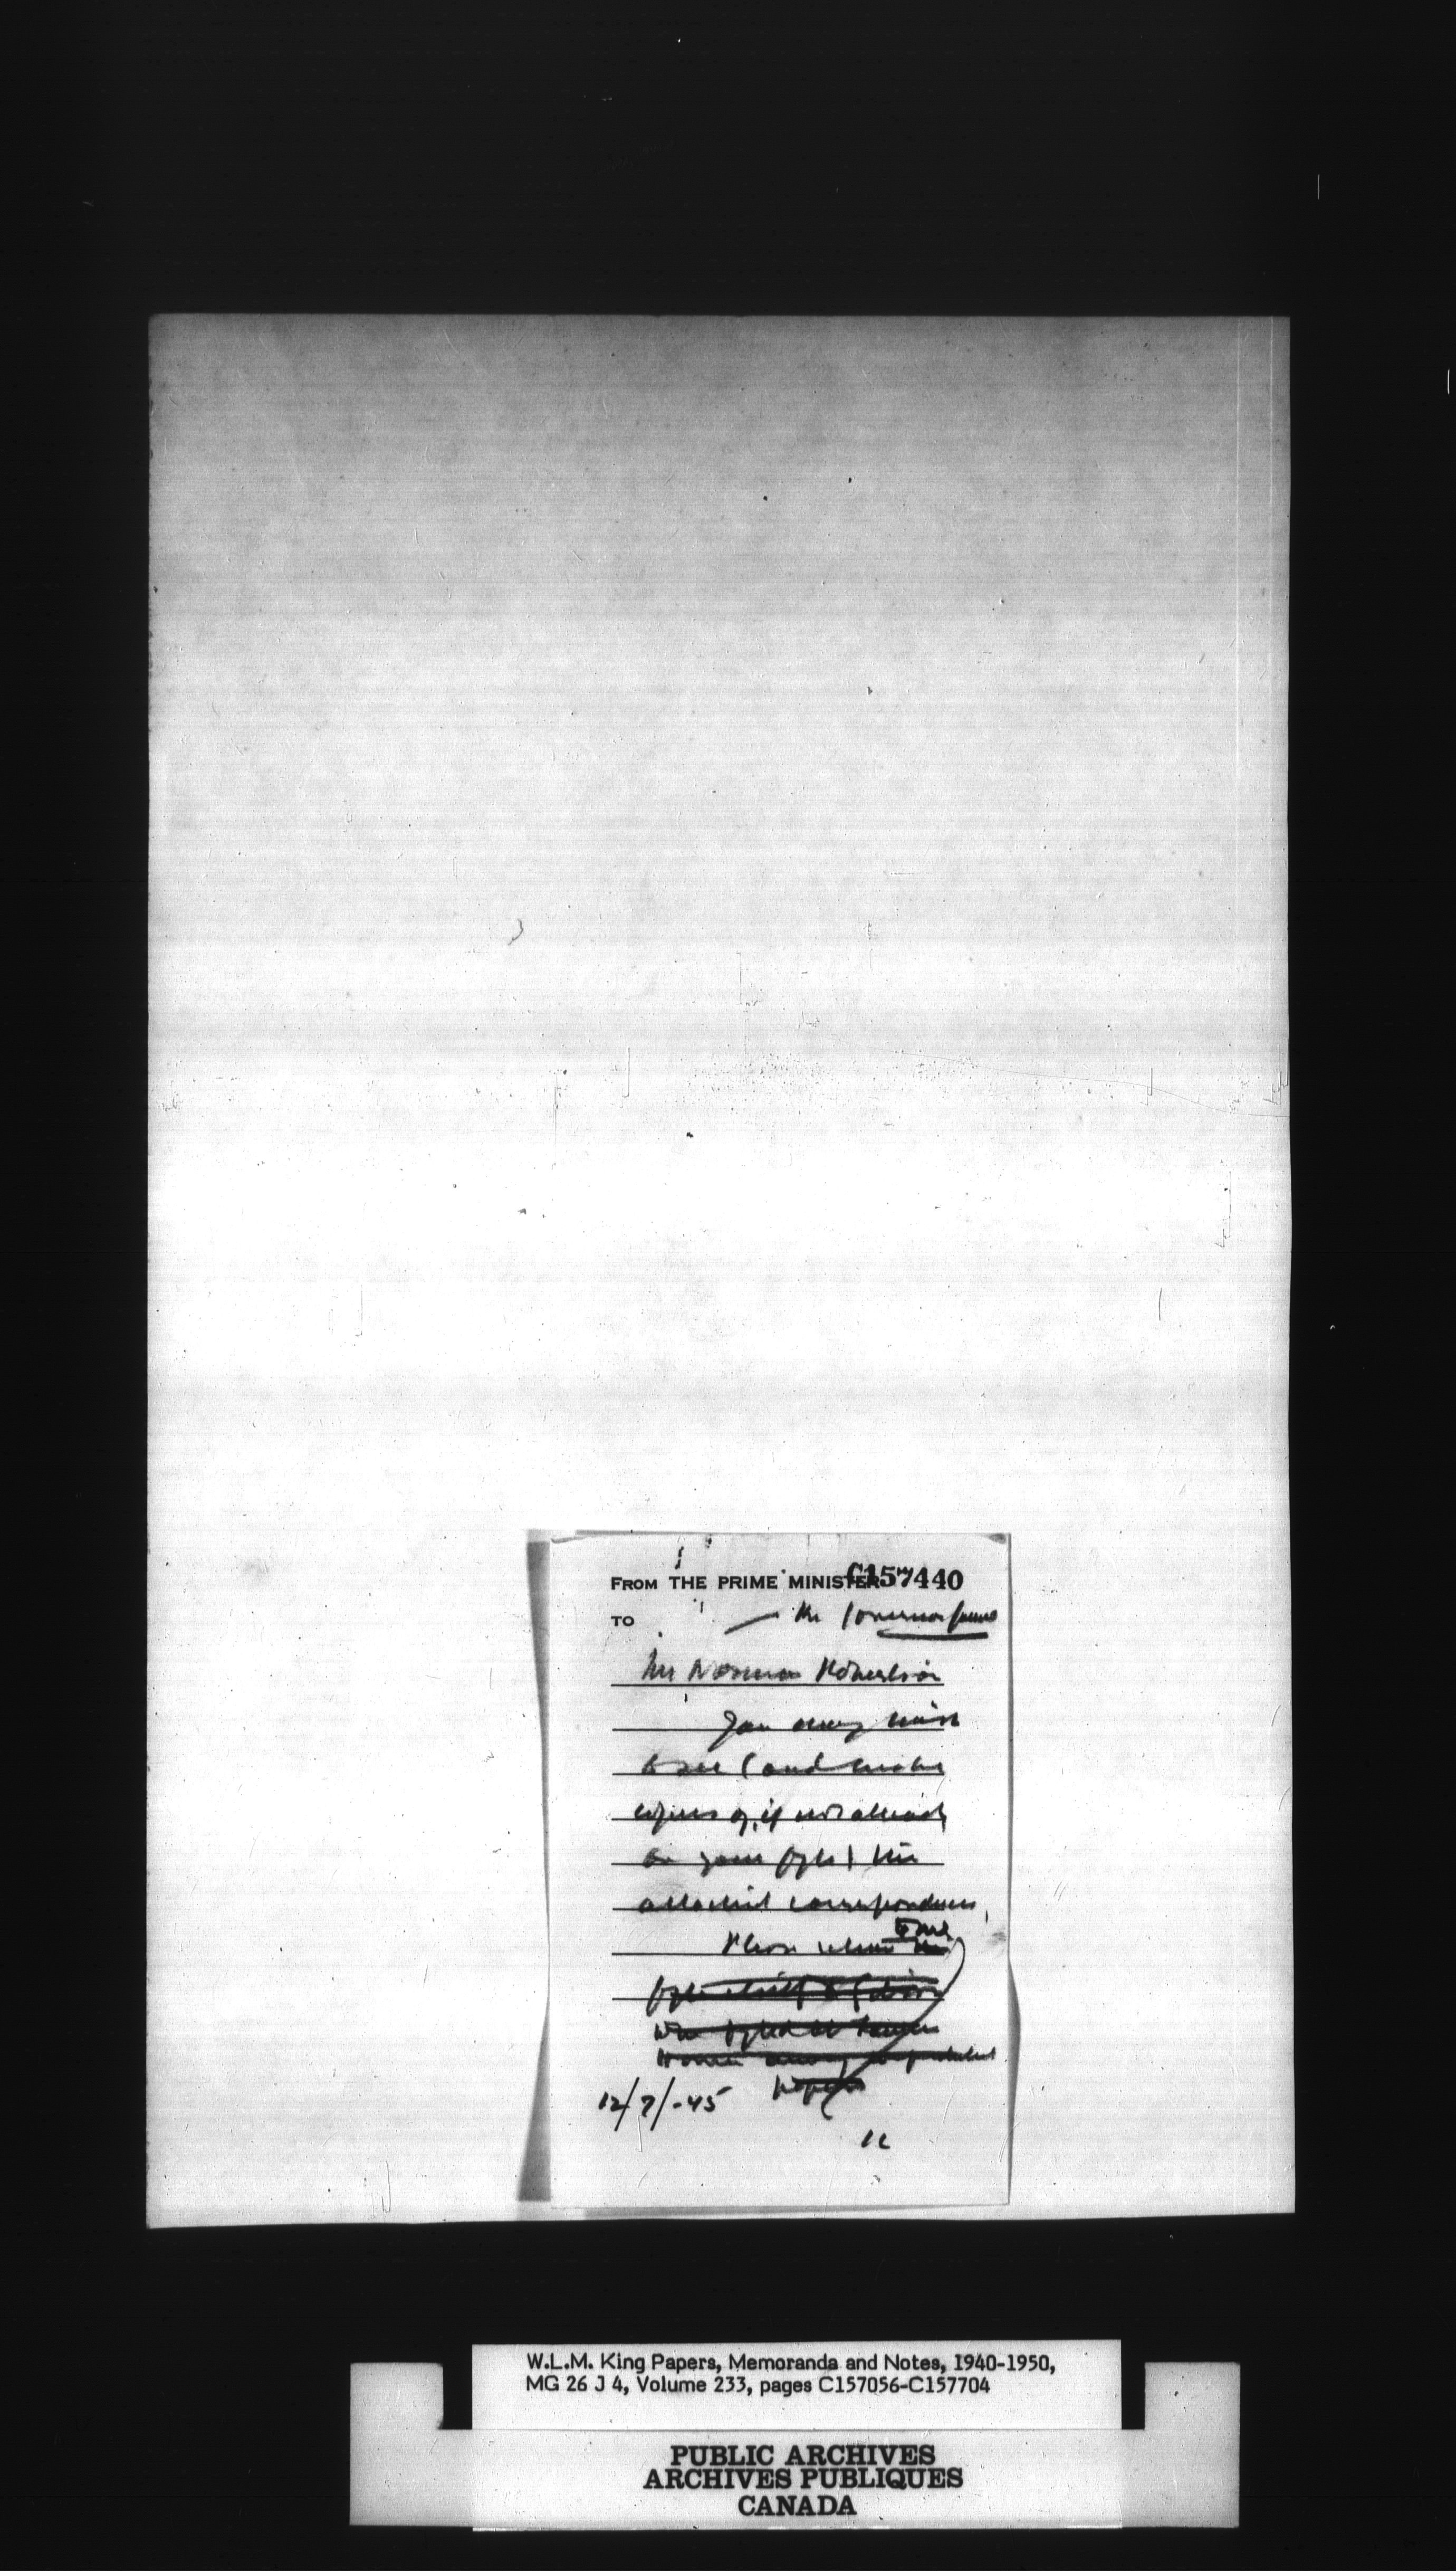 FROM THE PRIME MINISTER C157440
TO — The Governor General
Mr Norman Robertson
You may wish
to see (and make
copies of, if not already
on your files) the
attached correspondence,
to me
Please return
papers
12/7/-45
W.L.M. King Papers, Memoranda and Notes, 1940-1950,
MG 26 J 4, Volume 233, pages C157056-C157704
PUBLIC ARCHIVES
ARCHIVES PUBLIQUES
CANADA